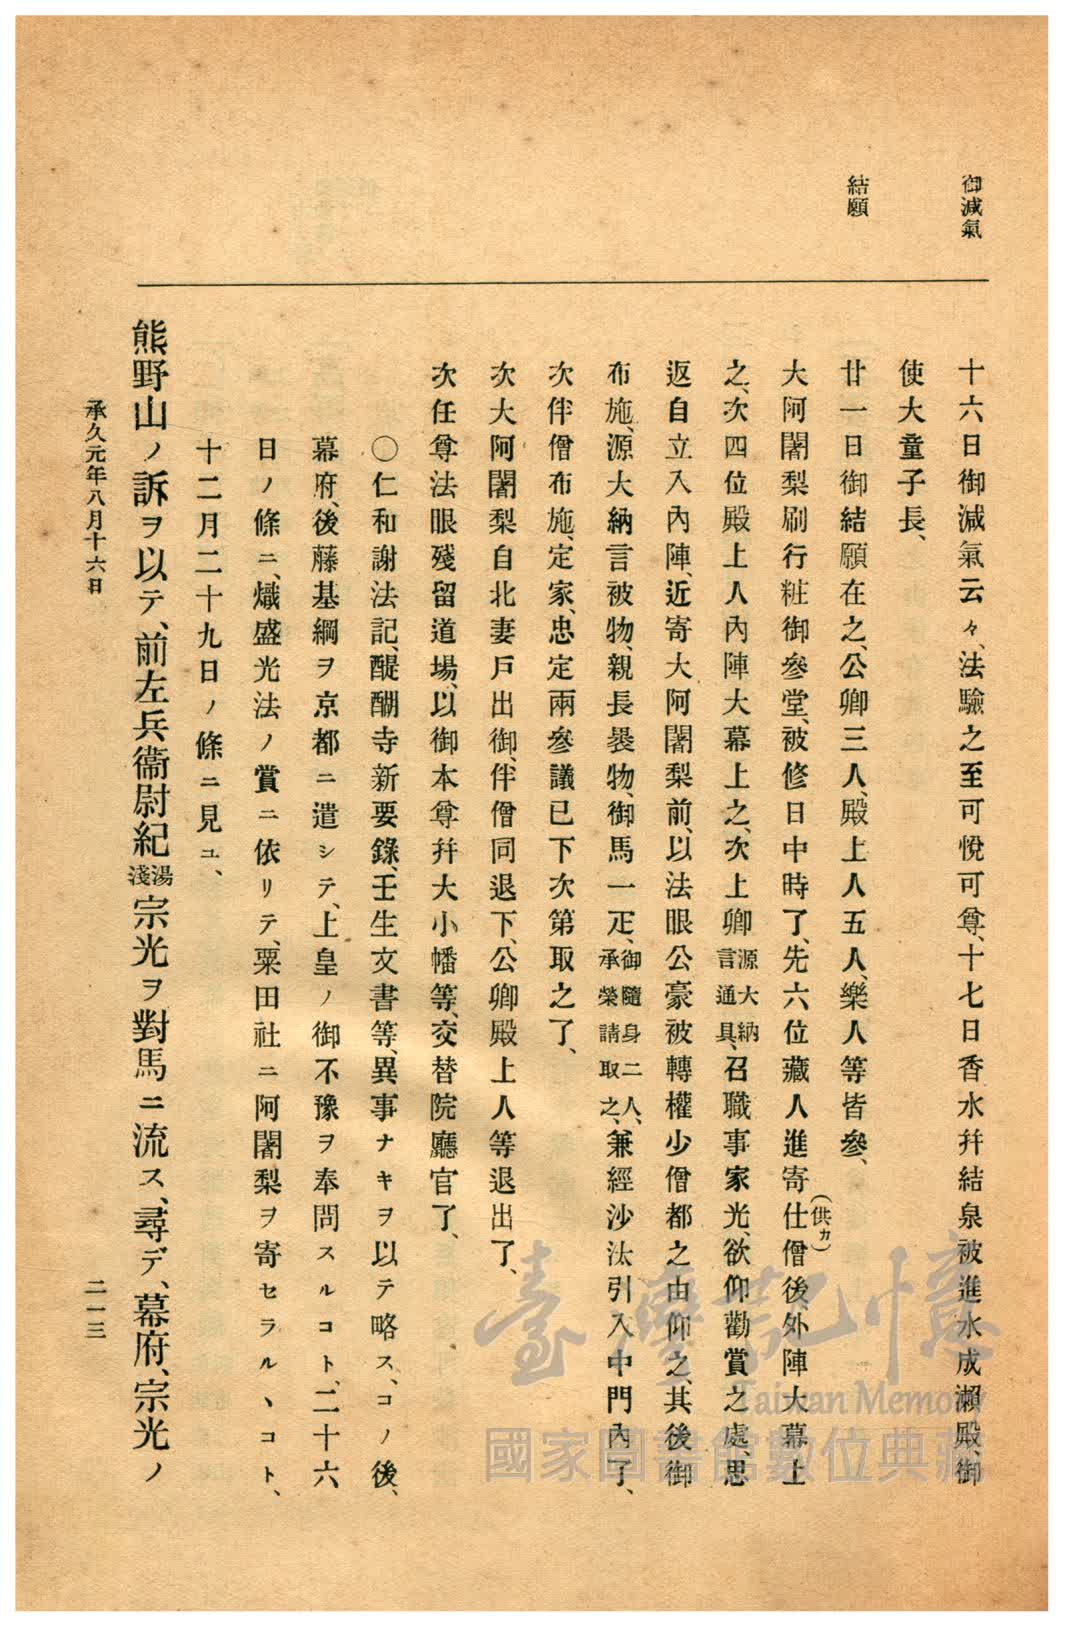 御減氣
結願
十六日御減氣云々、法驗之至可悅可尊、十七日香水幷結泉被進水成瀨殿、御
使大童子長、
廿一日御結願在之、公卿三人、殿上人五人、樂人等皆參、
大阿闍梨刷行粧御參堂、被修日中時了、先六位藏人進寄仕(供カ)僧後、外陣大幕上
之、次四位殿上人內陣大幕上之、次上卿源大納言通具、召職事家光、欲仰勸賞之處、思
返自立入內陣、近寄大阿闍梨前、以法眼公豪被轉權少僧都之由仰之、其後御
布施、源大納言被物、親長裹物、御馬一疋、御隨身二人、承榮請取之、兼經沙汰引入中門內了、
次伴僧布施、定家、忠定兩參議已下次第取之了、
次大阿闍梨自北妻戶出御、伴僧同退下、公卿殿上人等退出了、
次任尊法眼殘留道場、以御本尊幷大小幡等、交替院廳官了、
〇仁和謝法記、醍醐寺新要錄、壬生文書等、異事ナキヲ以テ略ス、コノ後、
幕府、後藤基綱ヲ京都ニ遣シテ、上皇ノ御不豫ヲ奉問スルコト、二十六
日ノ條ニ、熾盛光法ノ賞ニ依リテ、粟田社ニ阿闍梨ヲ寄セラルヽコト、
十二月二十九日ノ條ニ見ユ、
熊野山ノ訴ヲ以テ、前左兵衞尉紀湯淺宗光ヲ對馬ニ流ス、尋デ、幕府、宗光ノ
承久元年八月十六日
二一三
臺灣記憶
Taiwan Memory
國家圖書館數位典藏